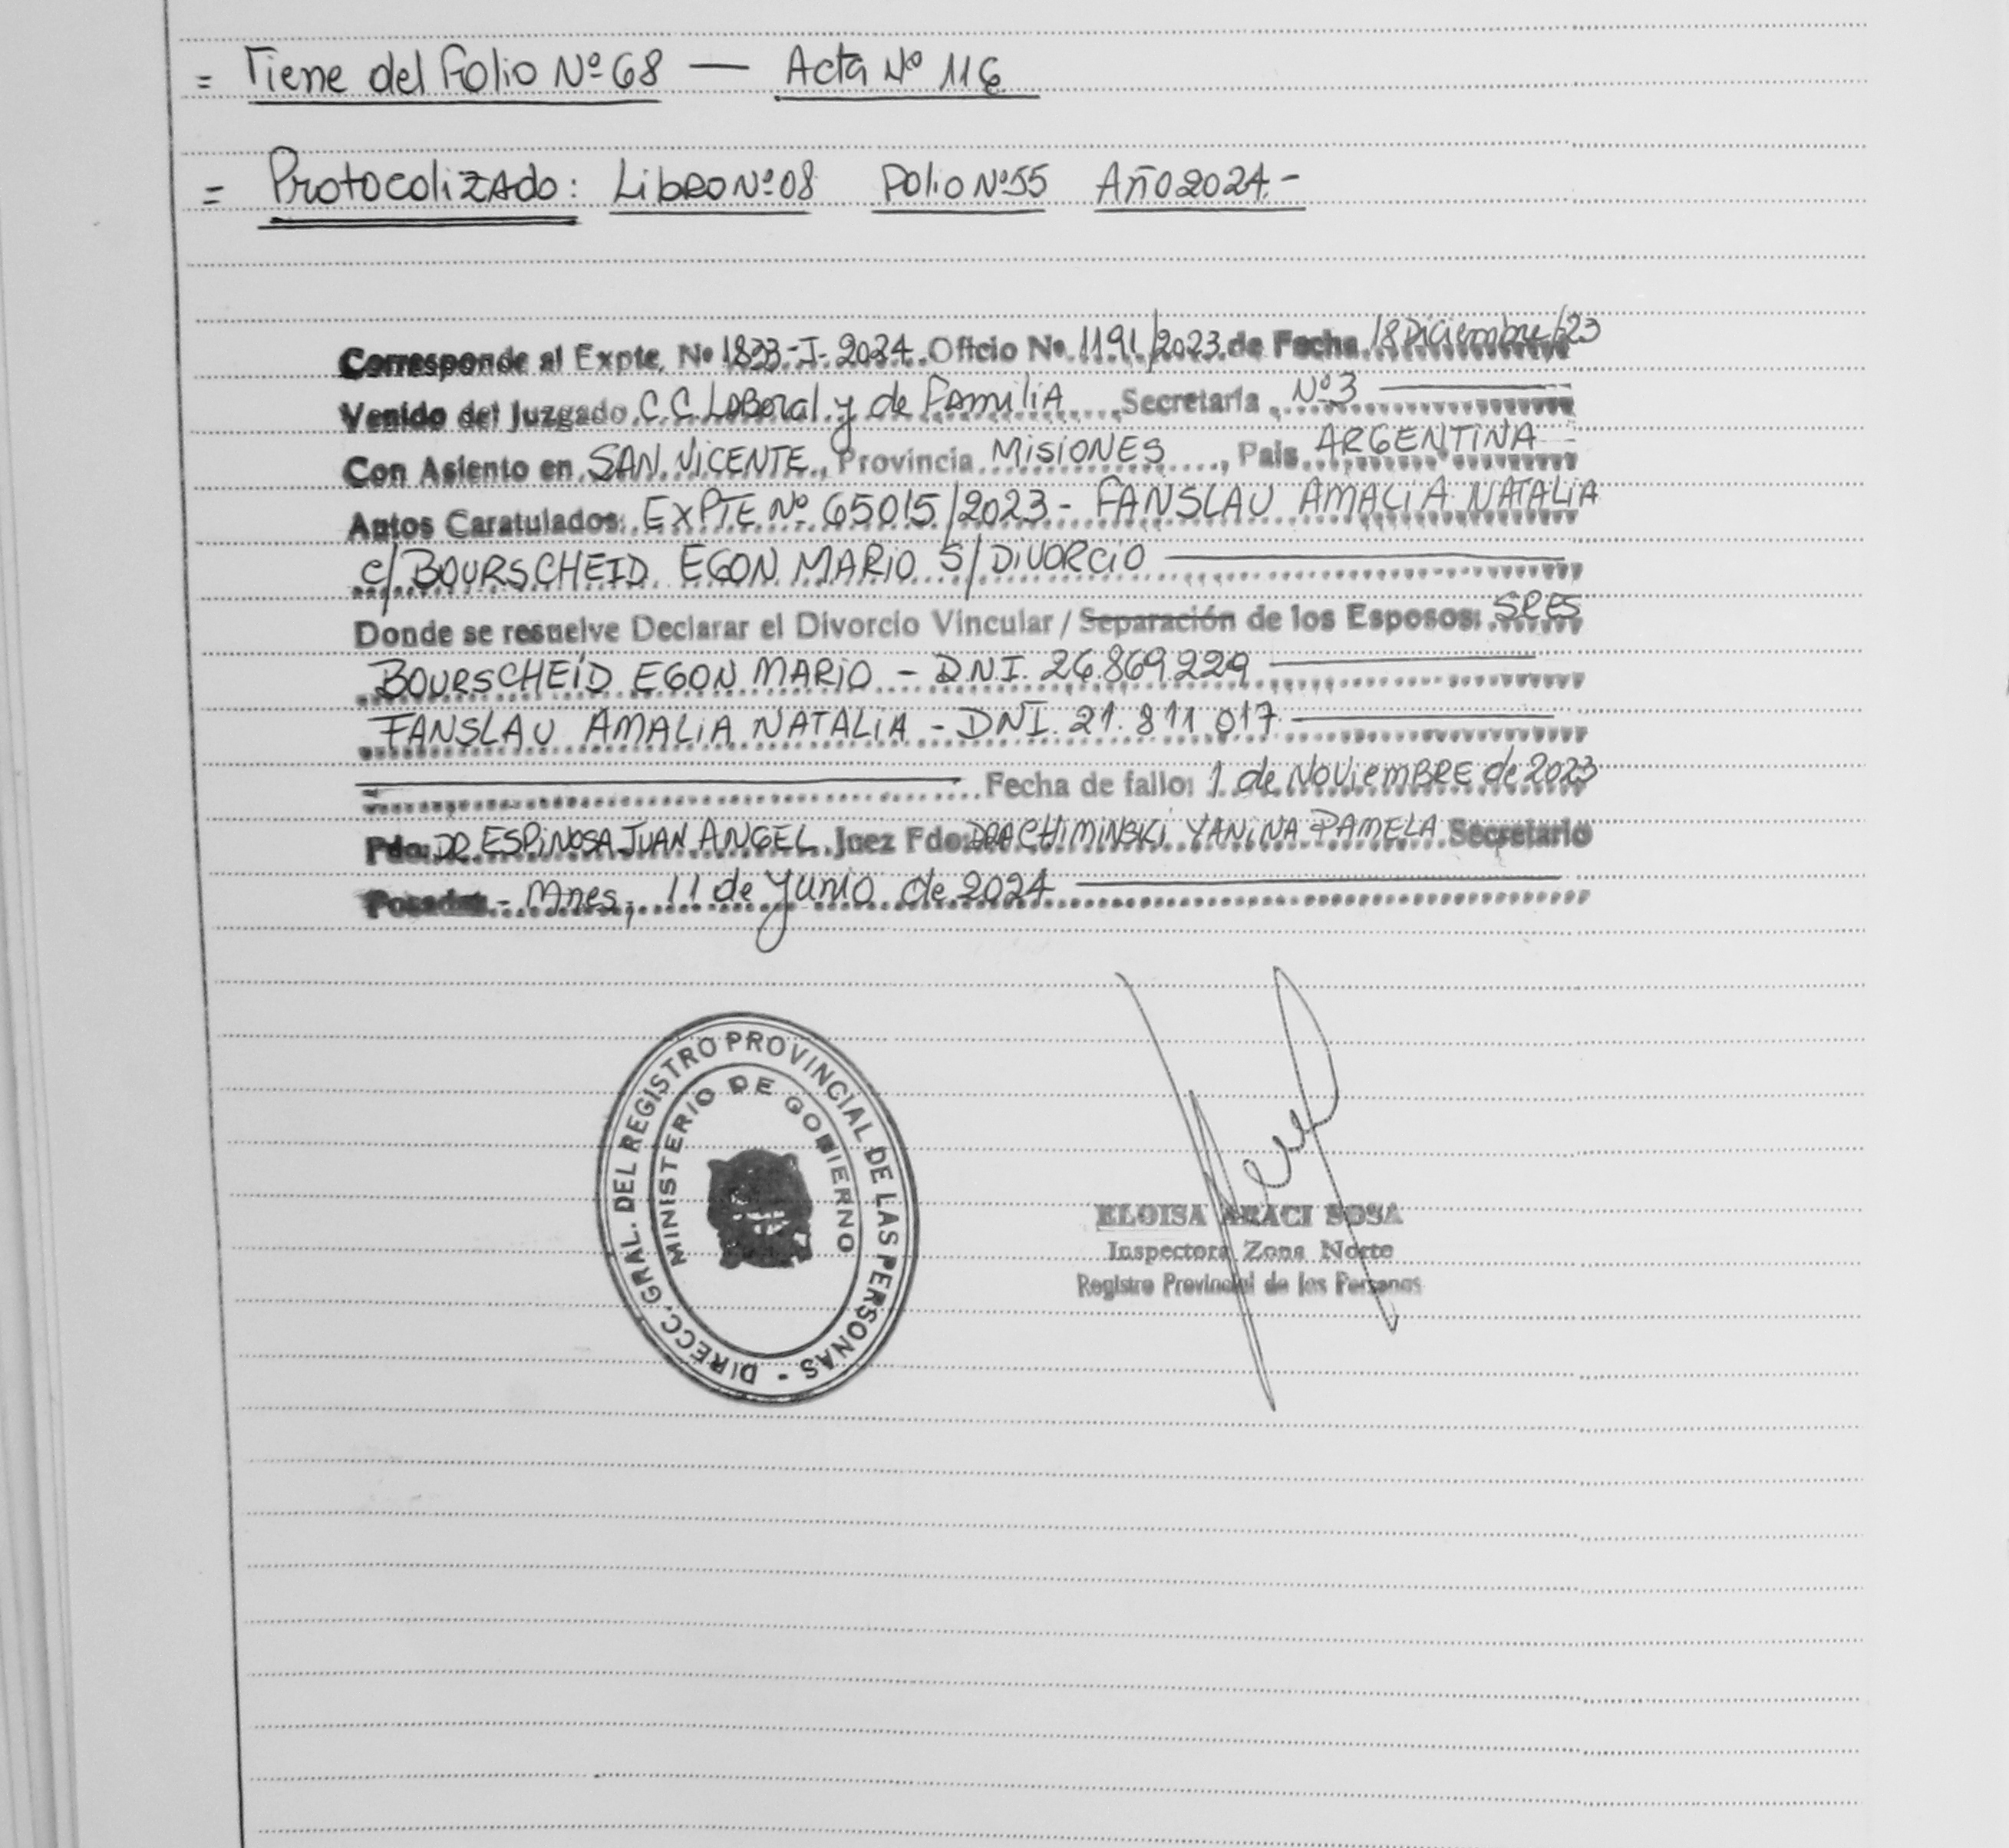 = Viene del Folio Nº 68 — Acta Nº 116
= Protocolizado: Libro Nº 08 Folio Nº 55 Año 2024.-
Corresponde al Expte. Nº 1833-I-2024. Oficio Nº 1191/2023 de Fecha 18 Diciembre/23
Venido del Juzgado C.C. Laboral y de Familia, Secretaría Nº 3
Con Asiento en SAN VICENTE, Provincia MISIONES, Pais ARGENTINA
Autos Caratulados: EXPTE Nº 65015/2023 - FANSLAU AMALIA NATALIA
c/ BOURSCHEID EGON MARIO S/ DIVORCIO
Donde se resuelve Declarar el Divorcio Vincular / Separación de los Esposos: SRES
BOURSCHEID EGON MARIO - D.N.I. 26.869.229
FANSLAU AMALIA NATALIA - DNI. 21.811.017
Fecha de fallo: 1 de NOVIEMBRE de 2023
Fdo: DR ESPINOSA JUAN ANGEL. Juez Fdo: DRA CHIMINSKI YANINA PAMELA Secretario
Posadas.- Mnes, 11 de Junio de 2024
DIRECC. GRAL. DEL REGISTRO PROVINCIAL DE LAS PERSONAS -
MINISTERIO DE GOBIERNO
ELOISA ARACI SOSA
Inspectora Zona Norte
Registro Provincial de las Personas